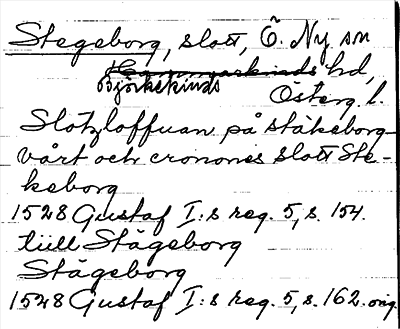 Stegeborg, slott, Ö. Ny sn
Hammarkinds hd,
Björkekinds
Österg. l.
Slotzloffuan på stäkeborg
vårt och cronones slott Ste-
keborg
1528 Gustaf I:s reg. 5, s. 154.
tiill Stägeborg
Stägeborg
1528 Gustaf I:s reg. 5, s. 162. orig.